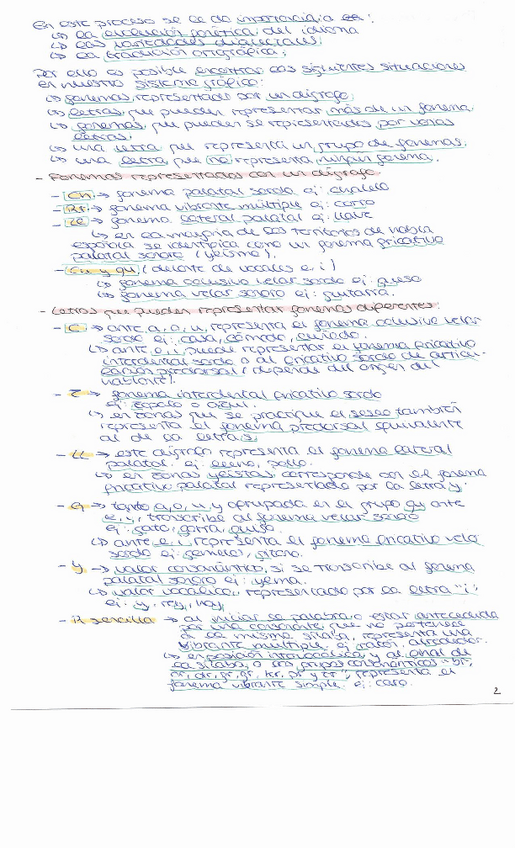 En este proceso se le da importancia a:
↳ la evolución fonética del idioma
↳ las variedades dialectales;
↳ la tradición ortográfica;
Por ello es posible encontrar las siguientes situaciones
en nuestro sistema gráfico:
↳ fonemas, representados por un dígrafo;
↳ letras, que pueden representar más de un fonema;
↳ fonemas, que pueden ser representados, por varias
letras;
↳ una letra que representa un grupo de fonemas;
↳ una letra, que no representa ningún fonema.
- Fonemas representados con un dígrafo
- Ch → fonema palatal sordo ej:
- Rr → fonema vibrante múltiple ej: corro
- Ll → fonema lateral palatal ej: llave
↳ en la mayoría de los territorios de habla
española se identifica como un fonema fricativo
palatal sonoro (yeísmo).
- Gu y qu (delante de vocales e, i)
↳ fonema oclusivo velar sordo ej: queso
↳ fonema velar sonoro ej: guitarra.
- Letras que pueden representar fonemas diferentes:
- C → ante a, o, u, representa el fonema oclusivo velar
sordo ej: casa, cómodo, cuñado.
↳ ante e, i, puede representar el fonema fricativo
interdental sordo o al fricativo sordo de articu-
lación predorsal (depende del origen del
hablante).
- Z → fonema interdental fricativo sordo
ej: zapato o azul.
↳ en zonas que se practique el seseo también
representa el fonema predorsal equivalente
al de la letra s;
- LL → este dígrafo representa el fonema lateral
palatal. ej: lleno, pollo.
↳ en zonas yeístas corresponde con el fonema
fricativo palatal representado por la letra y.
- G → tanto a, o, u, y agrupada en el grupo gu ante
e, i, transcribe al fonema velar sonoro
ej: gato, gorra,
↳ ante e, i, representa el fonema fricativo velar
sordo ej: gemelos, gitano.
- Y → valor consonántico, si se transcribe al fonema
palatal sonoro ej: yema.
↳ valor vocálico, representado por la letra "i";
ej: rey, hoy,
- R sencilla → al iniciar la palabra, o estar antecedida
por una consonante que no pertenece
a la misma sílaba, representa una
vibrante múltiple, ej: ratón, alrededor.
↳ en posición intervocálica, y al final de
la sílaba, o en grupos consonánticos "br,
cr, dr, fr, gr, kr, pr y tr", representa el
fonema vibrante simple ej: caro.
2